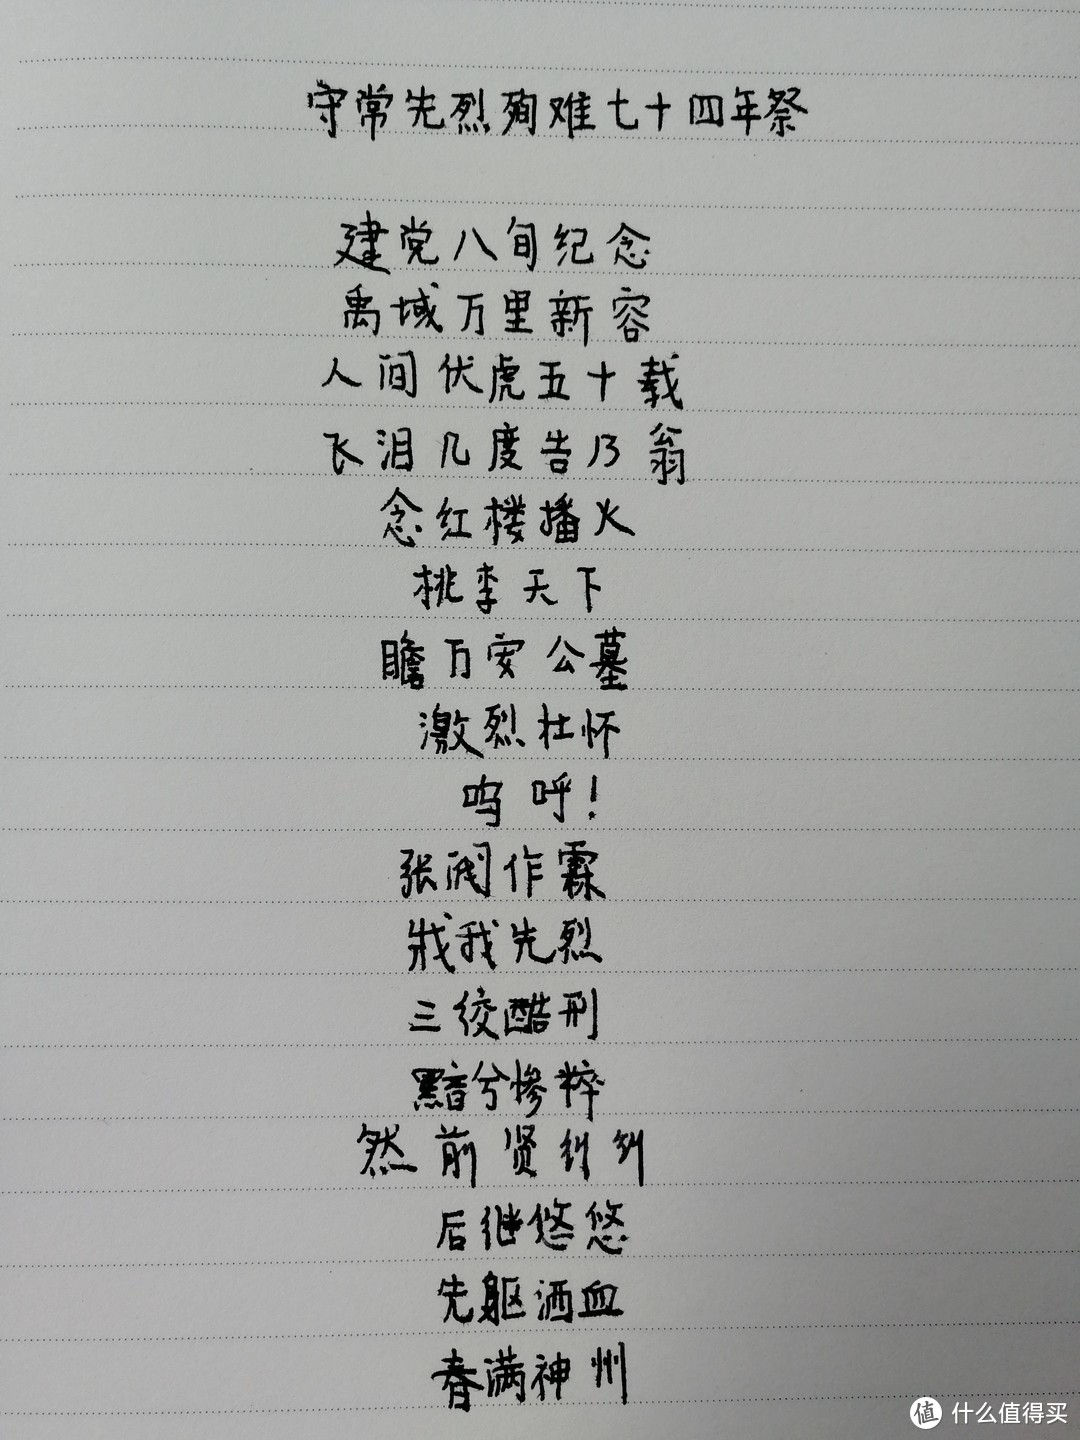 守常先烈殉难七十四年祭
建党八旬纪念
禹域万里新容
人间伏虎五十载
飞泪几度告乃翁
念红楼播火
桃李天下
瞻万安公墓
激烈壮怀
呜呼!
张阀作霖
戕我先烈
三绞酷刑
黯兮惨粹
然前贤纠纠
后继悠悠
先躯洒血
春满神州
值 什么值得买